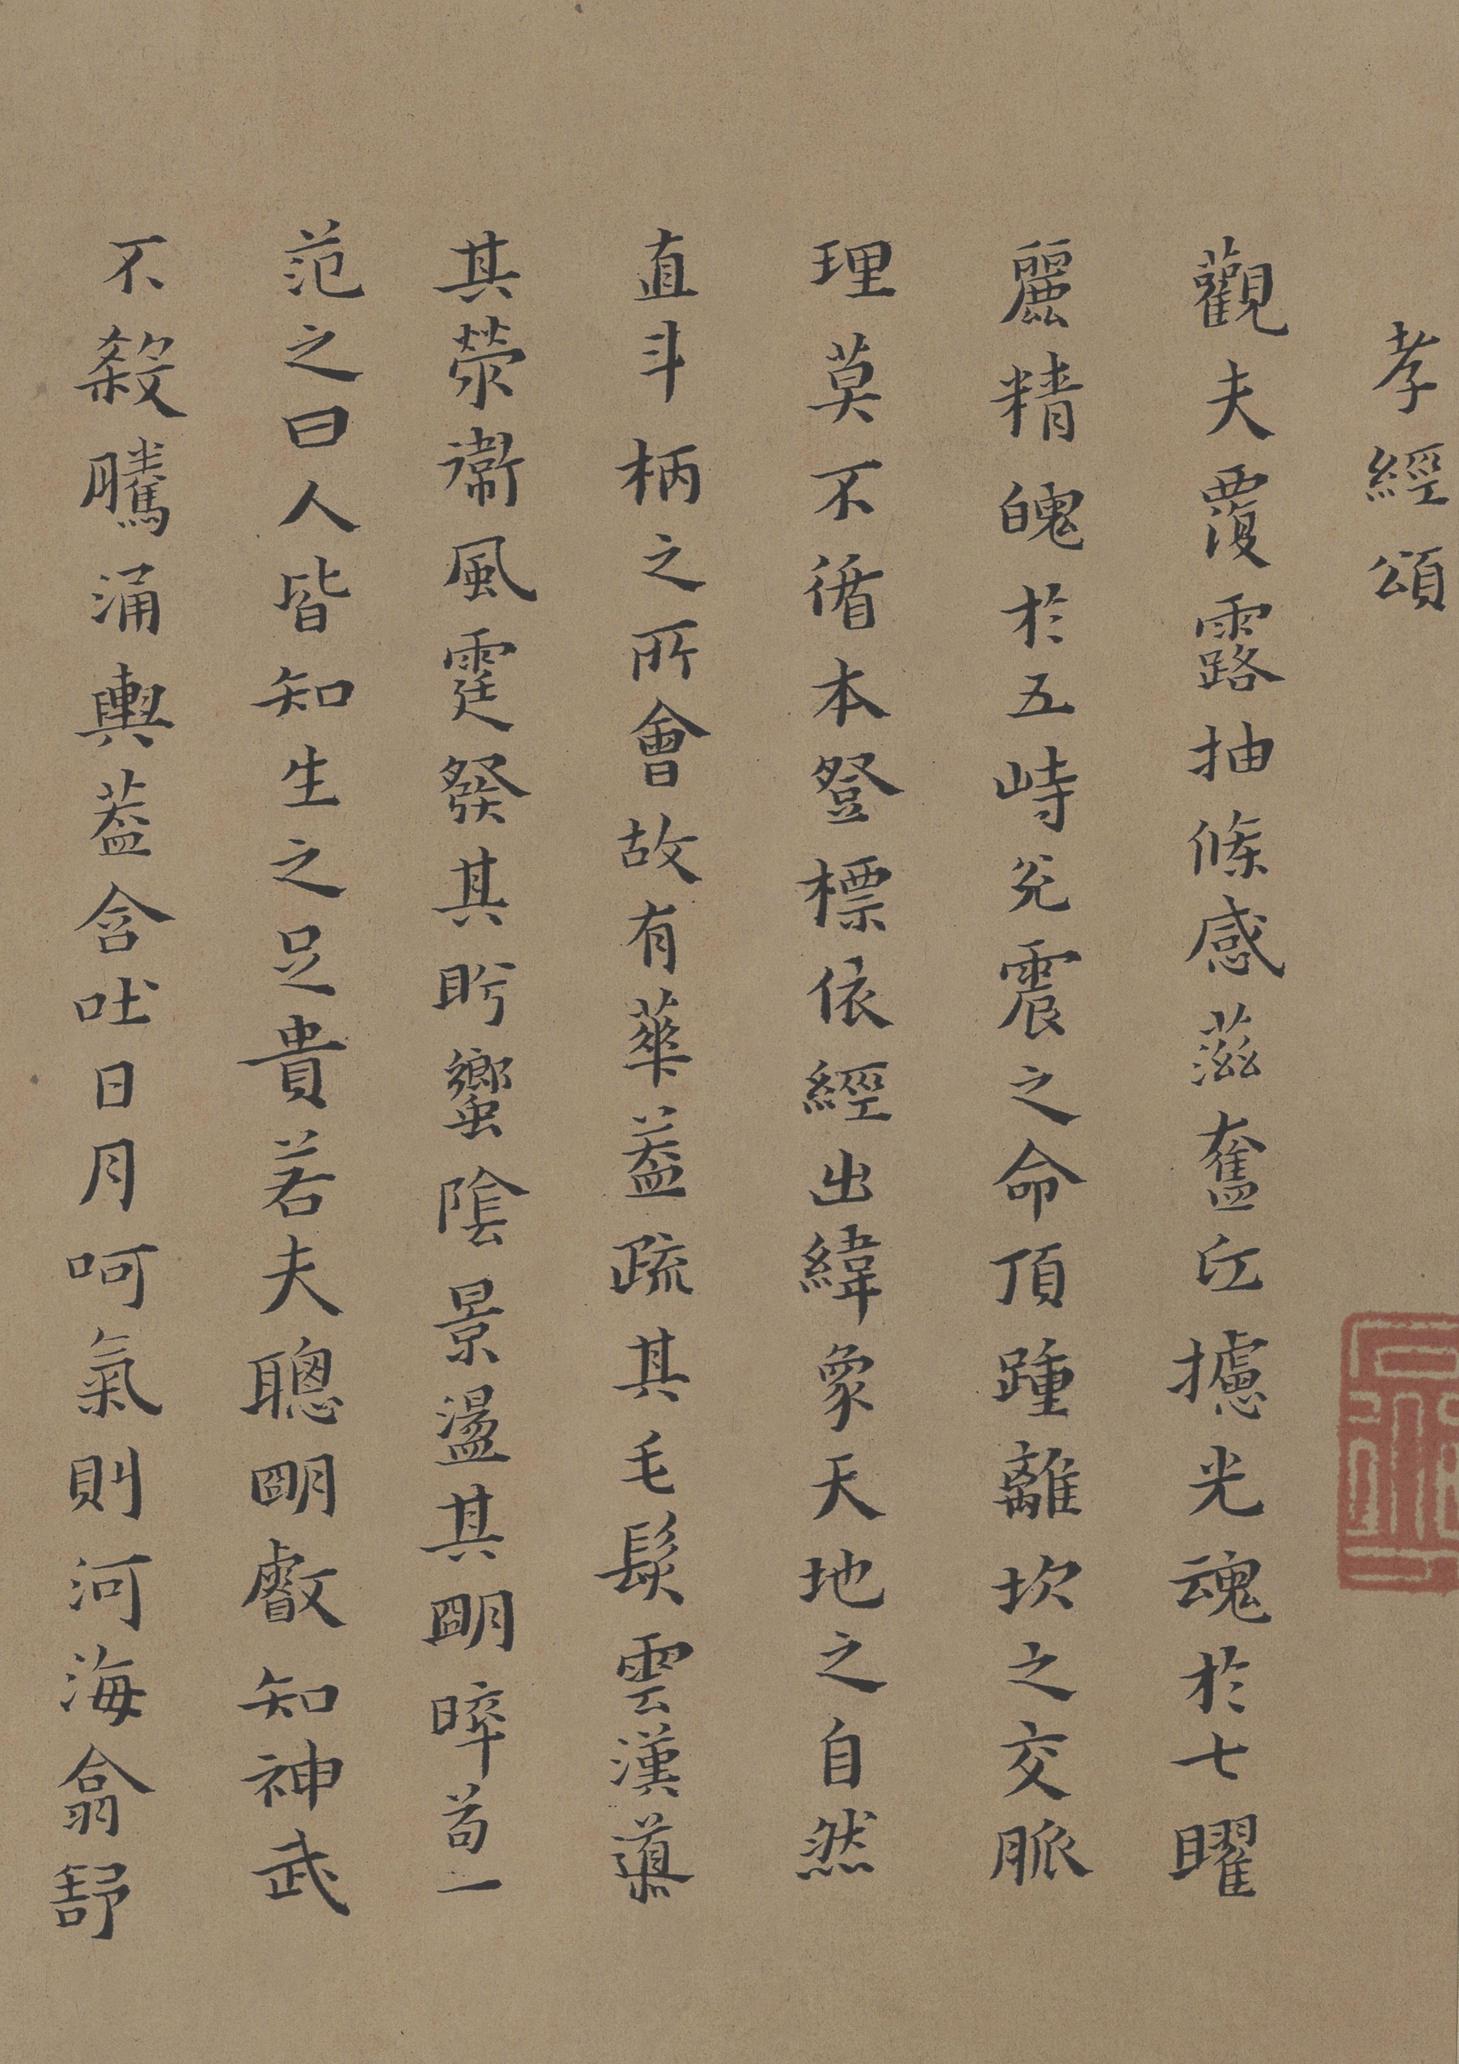 孝經頌
觀夫覆露抽條感蒸奮丘攄光魂於七曜
麗精魄於五峙兊震之命頂踵離坎之交脈
理莫不循本登標依經出緯象天地之自然
直斗柄之所會故有華蓋疏其毛髮雲漢導
其滎衞風霆發其盻蠁陰景盪其明晬苟一
范之曰人皆知生之足貴若夫聰明叡知神武
不殺騰涌輿蓋含吐日月呵氣則河海翕舒